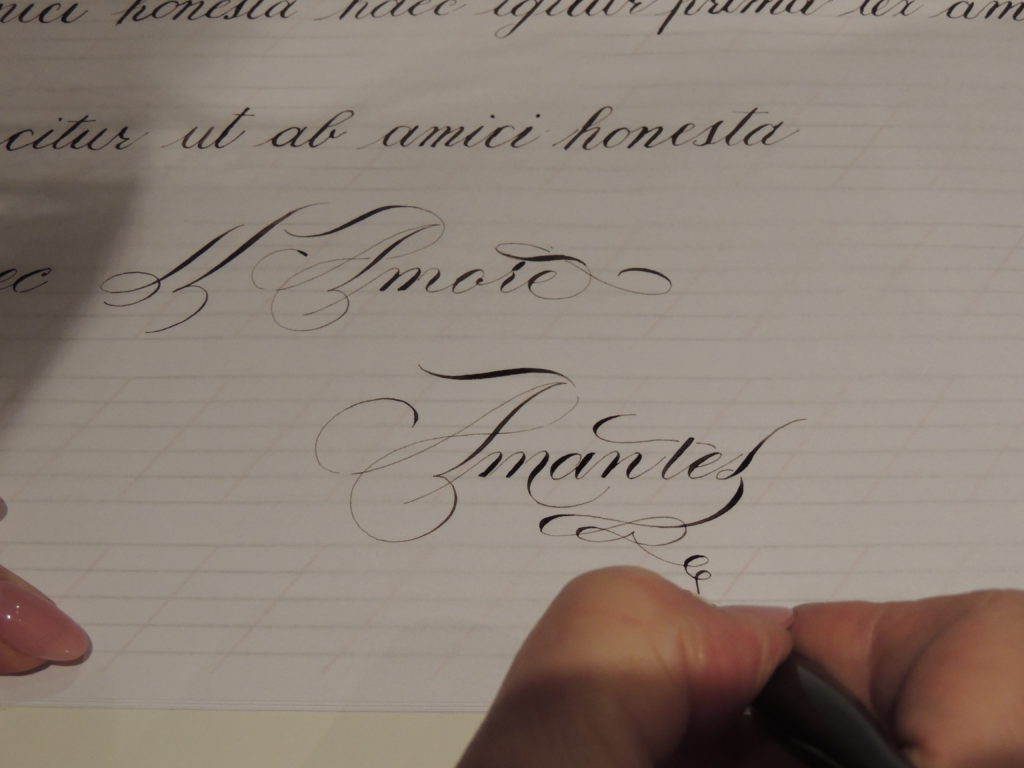 amici honesta haec igitur prima lex am
citur ut ab amici honesta
ec Il Amore
Amantes